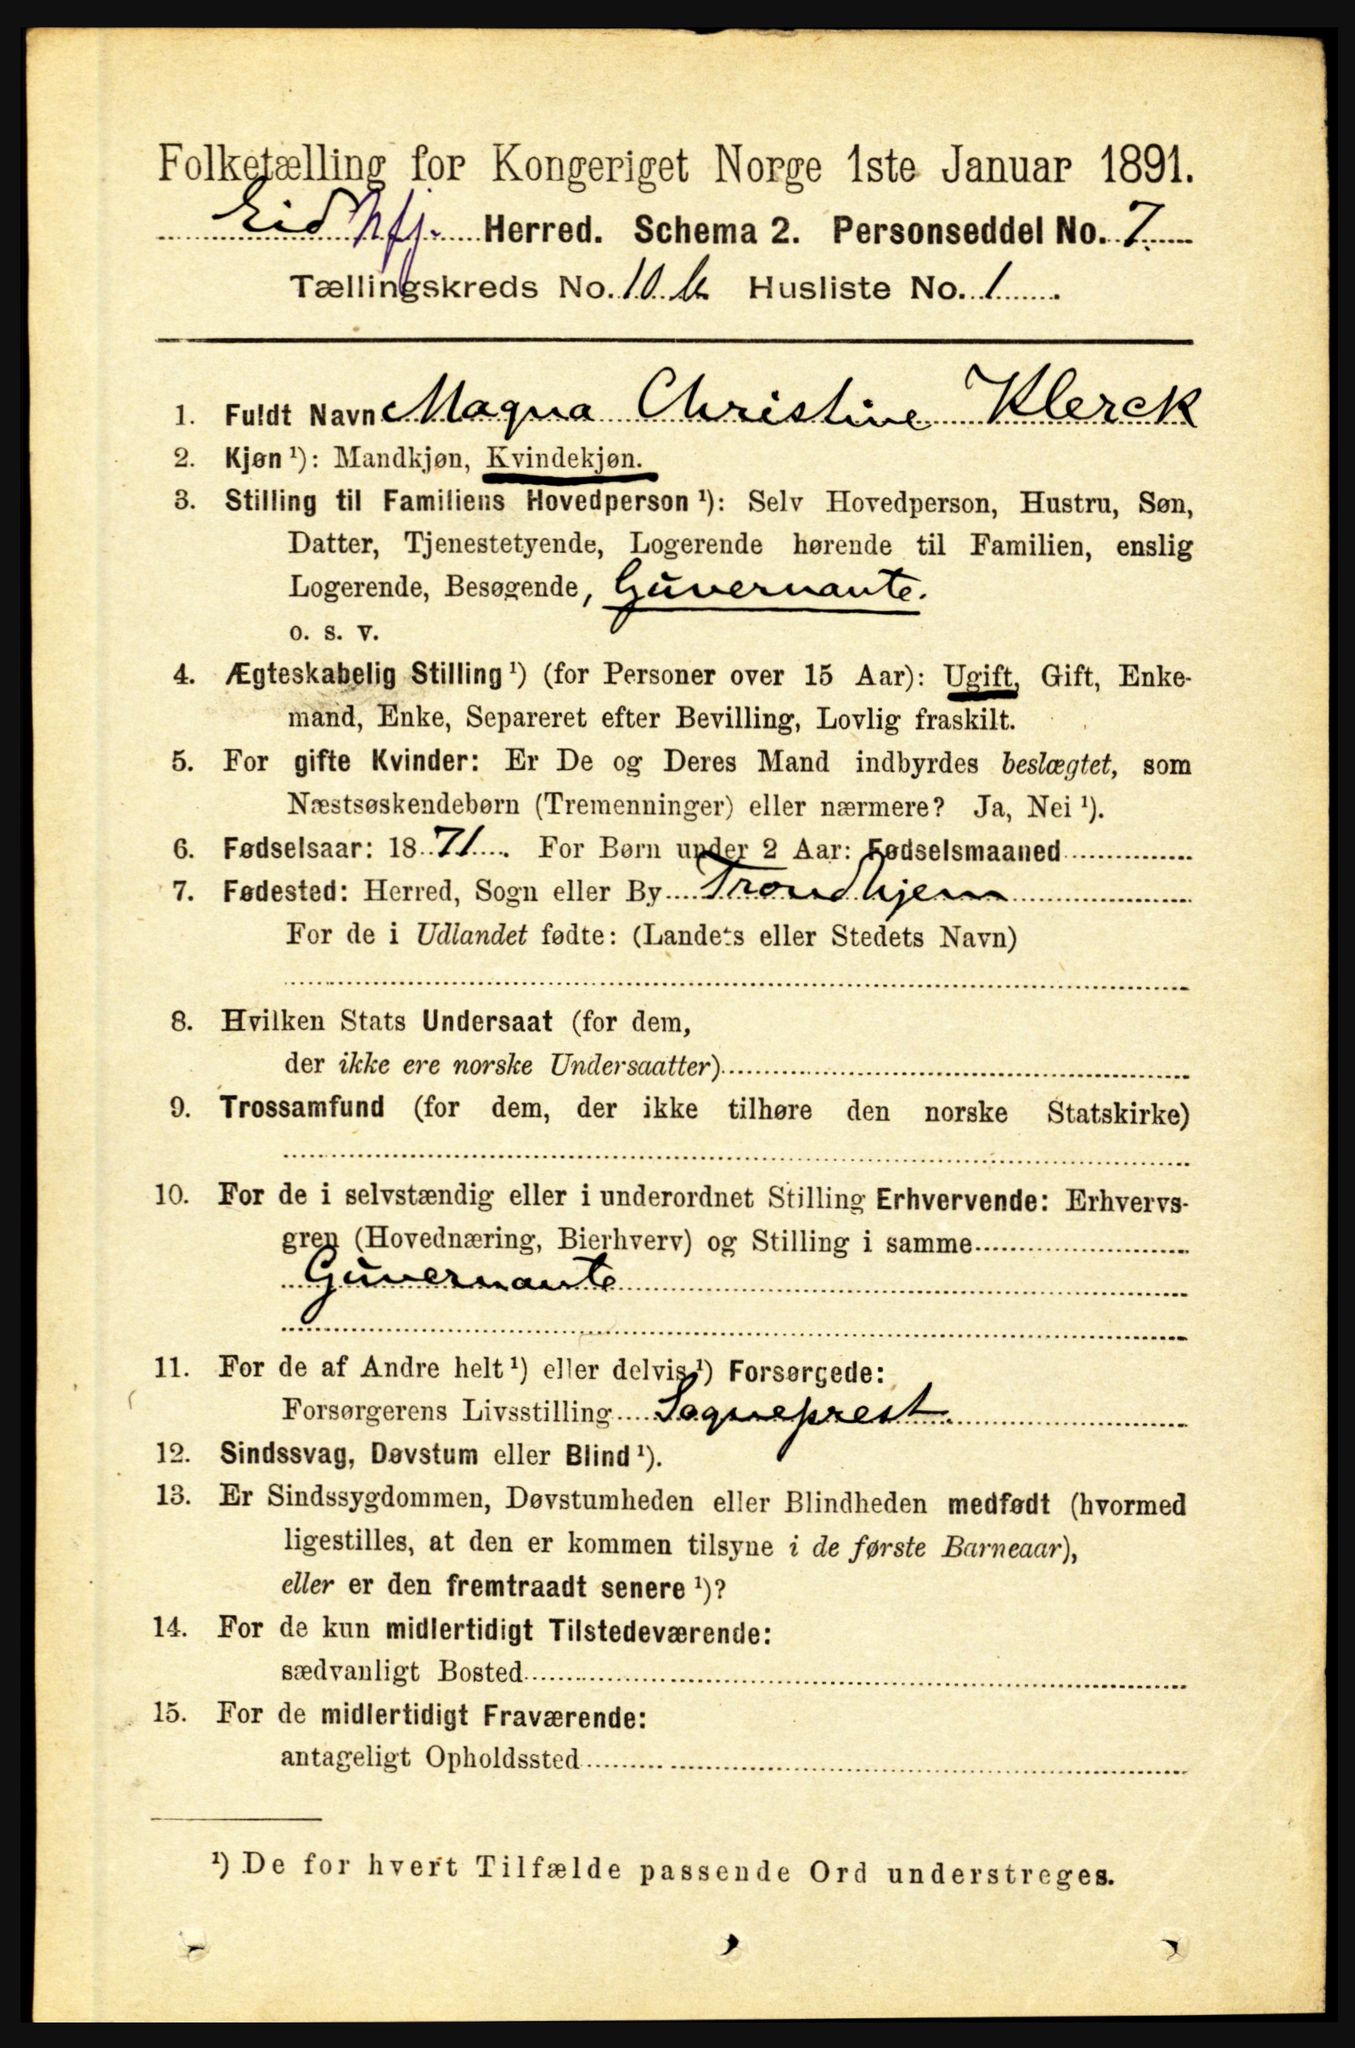 Folketælling for Kongeriget Norge 1ste Januar 1891.
Eid Nfj. Herred. Schema 2. Personseddel No. 7.
Tællingskreds No. 10 Husliste No. 1
1. Fuldt Navn Magna Christine Klerck
2. Kjøn ¹): Mandkjøn, Kvindekjøn.
3. Stilling til Familiens Hovedperson ¹): Selv Hovedperson, Hustru, Søn,
Datter, Tjenestetyende, Logerende hørende til Familien, enslig
Logerende, Besøgende, Guvernante.
o. s. v.
4. Ægteskabelig Stilling ¹) (for Personer over 15 Aar): Ugift, Gift, Enke-
mand, Enke, Separeret efter Bevilling, Lovlig fraskilt.
5. For gifte Kvinder: Er De og Deres Mand indbyrdes beslægtet, som
Næstsøskendebørn (Tremenninger) eller nærmere? Ja, Nei ¹).
6. Fødselsaar: 1871. For Børn under 2 Aar: Fødselsmaaned
7. Fødested: Herred, Sogn eller By Trondhjem
For de i Udlandet fødte: (Landets eller Stedets Navn)
8. Hvilken Stats Undersaat (for dem,
der ikke ere norske Undersaatter)
9. Trossamfund (for dem, der ikke tilhøre den norske Statskirke)
10. For de i selvstændig eller i underordnet Stilling Erhvervende: Erhvervs-
gren (Hovednæring, Bierhverv) og Stilling i samme
Guvernante
11. For de af Andre helt ¹) eller delvis ¹) Forsørgede:
Forsørgerens Livsstilling Sogneprest.
12. Sindssvag, Døvstum eller Blind ¹).
13. Er Sindssygdommen, Døvstumheden eller Blindheden medfødt (hvormed
ligestilles, at den er kommen tilsyne i de første Barneaar),
eller er den fremtraadt senere ¹)?
14. For de kun midlertidigt Tilstedeværende:
sædvanligt Bosted
15. For de midlertidigt Fraværende:
antageligt Opholdssted
¹) De for hvert Tilfælde passende Ord understreges.